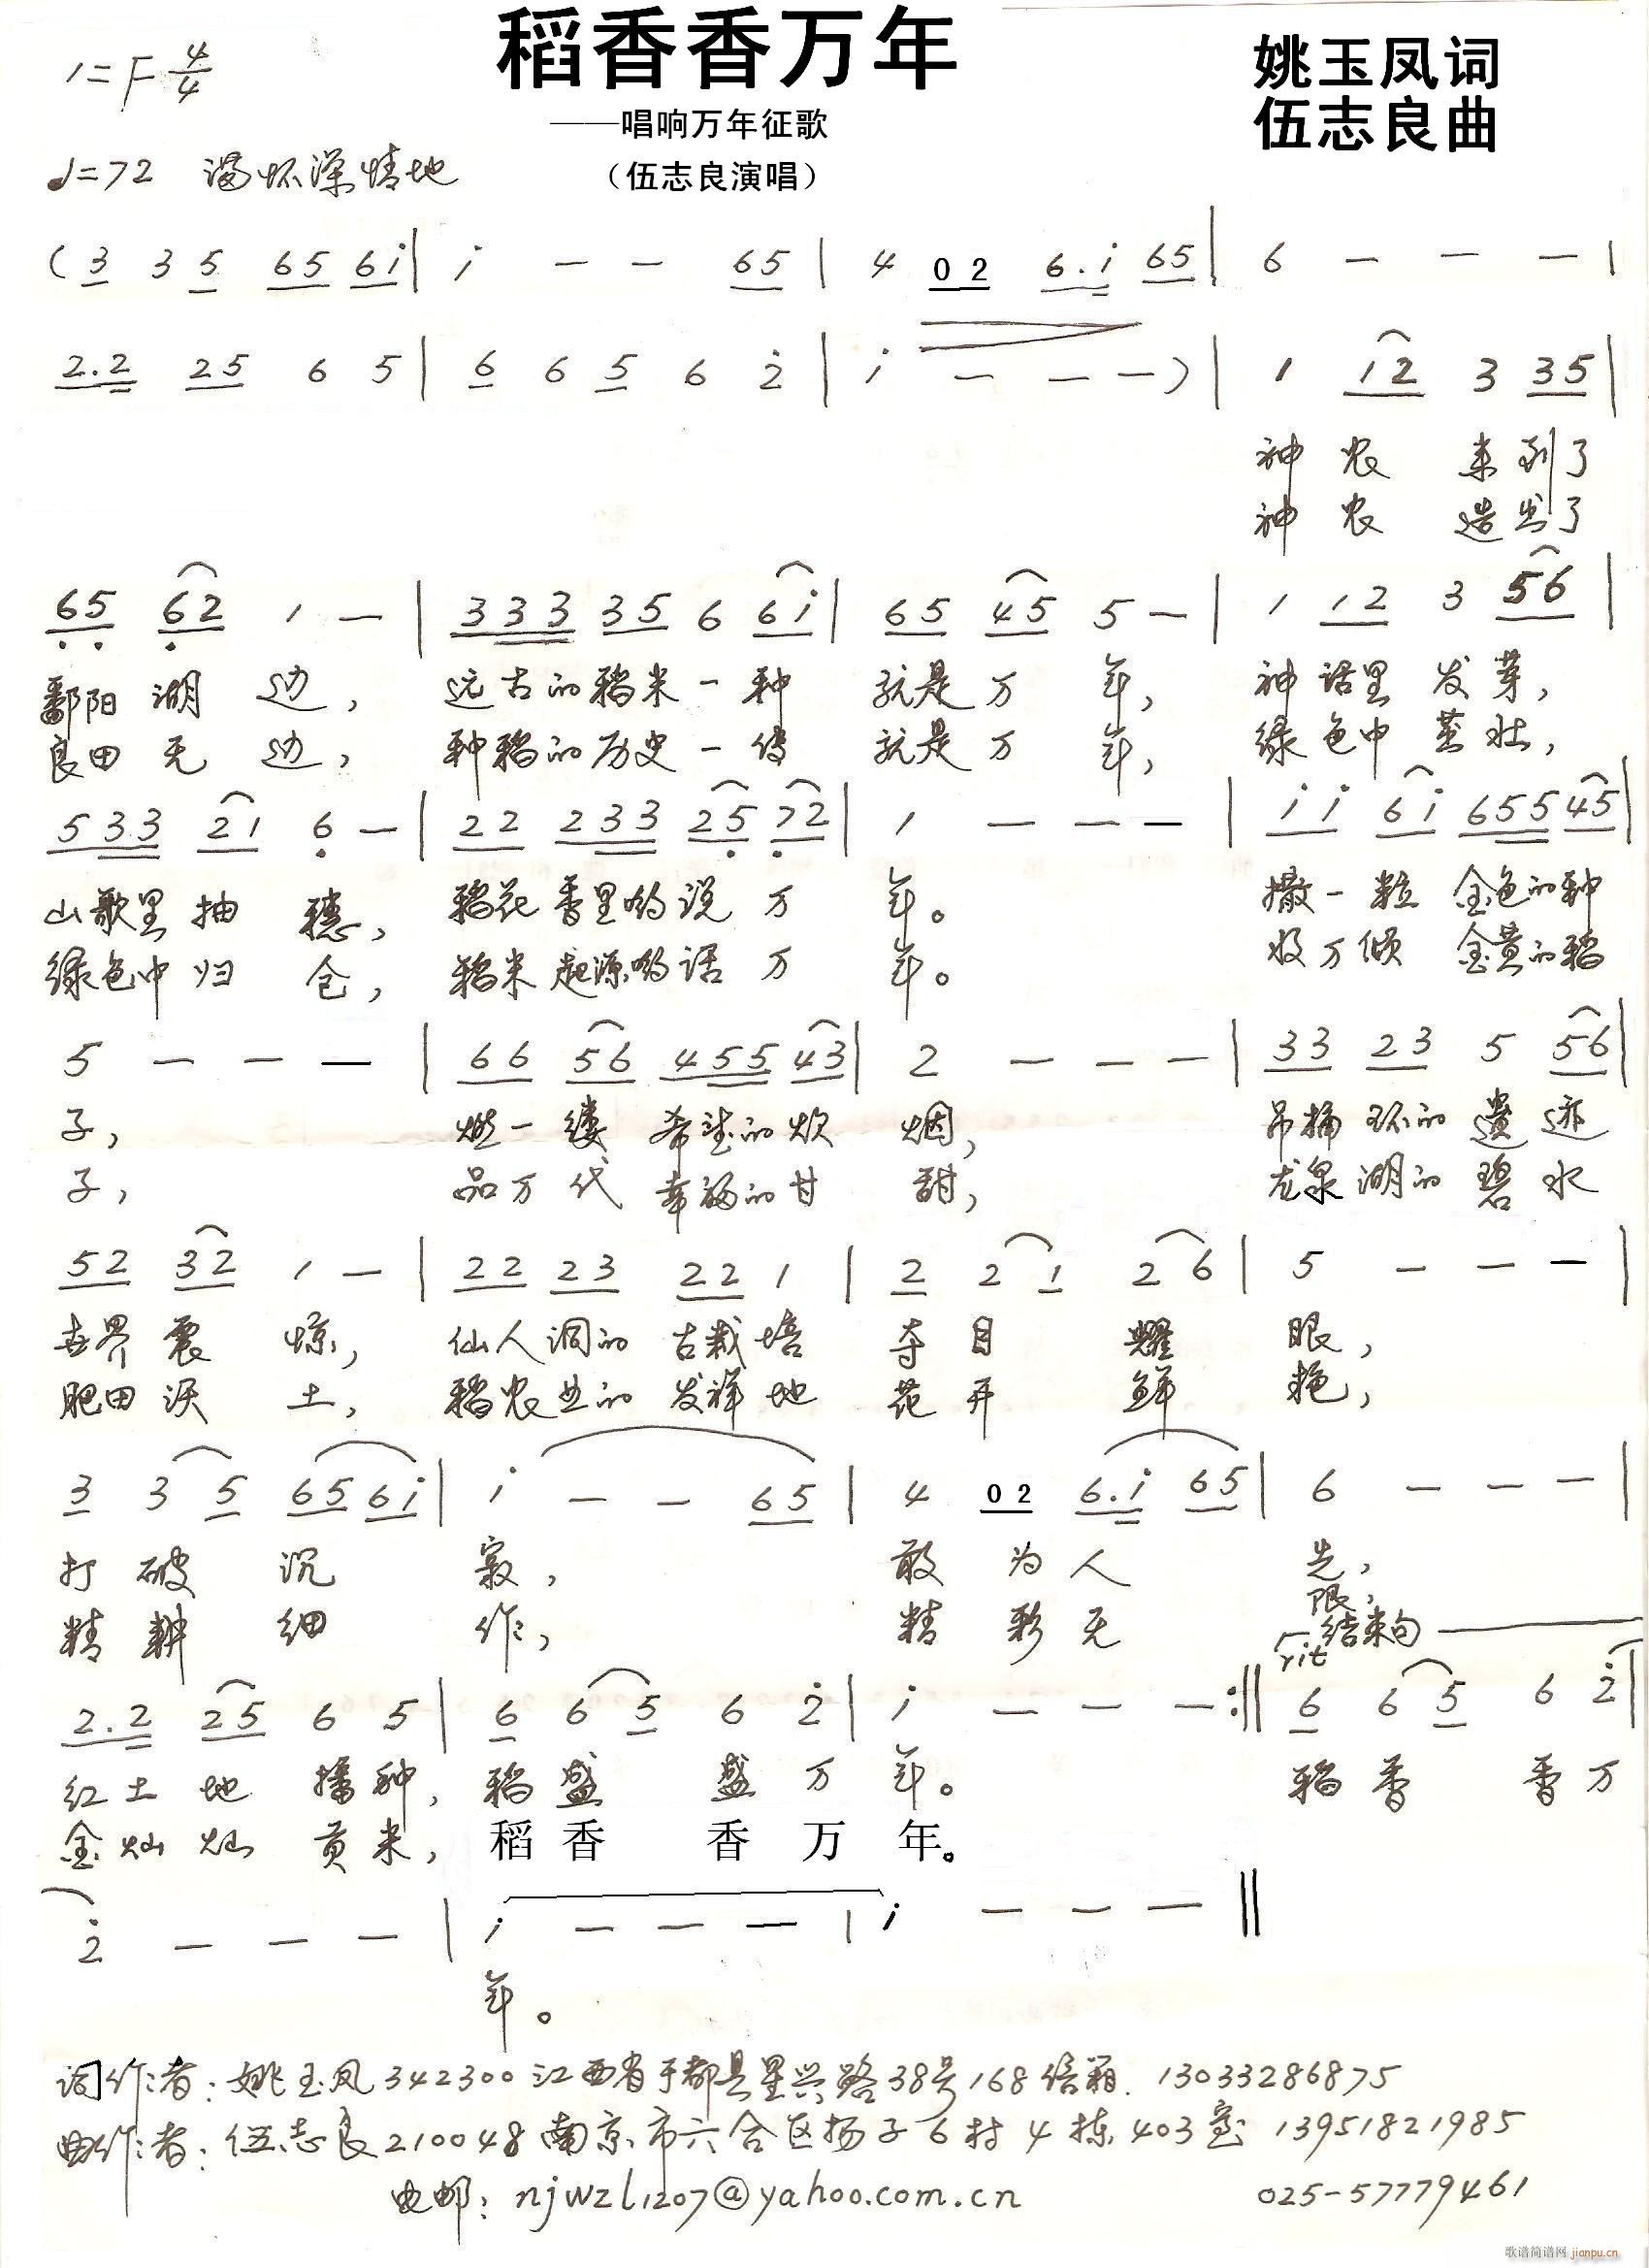 稻香香万年
1=F 4/4
姚玉凤词
——唱响万年征歌
伍志良曲
♩=72 满怀深情地
（伍志良演唱）
( 3 3 5 65 6i | i — — 65 | 4 02 6.i 65 | 6 — — — |
2.2 25 6 5 | 6 6 5 6 2 | i — — — ) | 1 12 3 35 |
神农 来到了
神农 造出了
65 62 1 — | 333 35 6 6i | 65 45 5 — | 1 12 3 56 |
鄱阳湖边， 远古的稻米一种 就是万年， 神话里发芽，
良田无边， 种稻的历史一传 就是万年， 绿色中茁壮，
533 21 6 — | 22 233 25 72 | 1 — — — | ii 6i 655 45 |
山歌里抽穗， 稻花香里哟说万年。 撒一粒金色的种
绿色中归仓， 稻米起源哟话万年。 好万倾金黄的稻
5 — — — | 66 56 455 43 | 2 — — — | 33 23 5 56 |
子， 燃一缕希望的炊烟， 吊桶环的遗迹
子， 品万代幸福的甘甜， 龙泉湖的碧水
52 32 1 — | 22 23 22 1 | 2 2 1 2 6 | 5 — — — |
世界震惊， 仙人洞的古栽培 夺目耀眼，
肥田沃土， 稻农业的发祥地 花开鲜艳，
3 3 5 65 6i | i — — 65 | 4 02 6.i 65 | 6 — — — |
打破沉寂， 敢为人先，
精耕细作， 精彩无限，
rit 结束句
2.2 25 6 5 | 6 6 5 6 2 | i — — — :‖ 6 6 5 6 2 |
红土地播种， 稻盛盛万年。 稻香香万
金灿灿贡米， 稻香香万年。
2 — — — | i — — — | i — — — ‖
年。
词作者：姚玉凤 342300 江西省于都县星兴路38号168信箱. 13033286875
曲作者：伍志良 210048 南京市六合区扬子6村4栋403室 13951821985
电邮：njwzl1207@yahoo.com.cn 025-57779461
歌谱简谱网 jianpu.cn